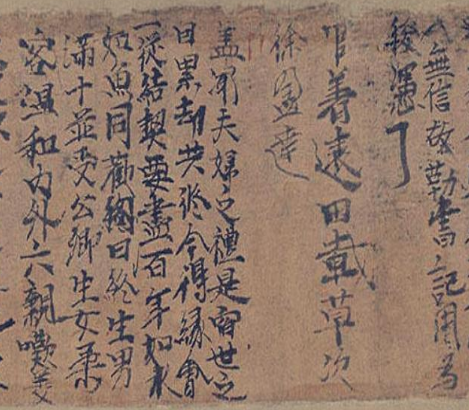 人無信故勒書記用為
後憑了
善遠田載草次
徐盈達
蓋聞夫婦之禮是宿世之
因累劫共修今得緣會
一從結契要盡百年如水
如魚同歡終日生男
滿十並受公卿生女柔
容溫和內外六親嘆美